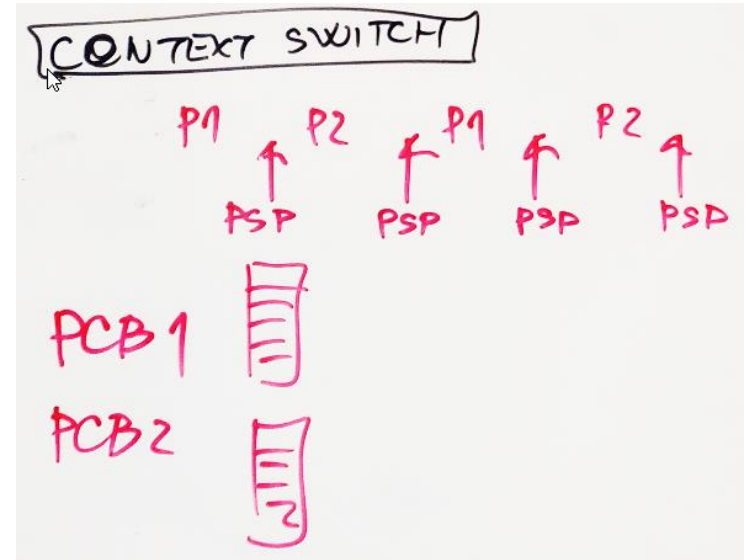 CONTEXT SWITCH
P1 P2 P1 P2
PSP PSP PSP PSP
PCB 1
PCB 2
2